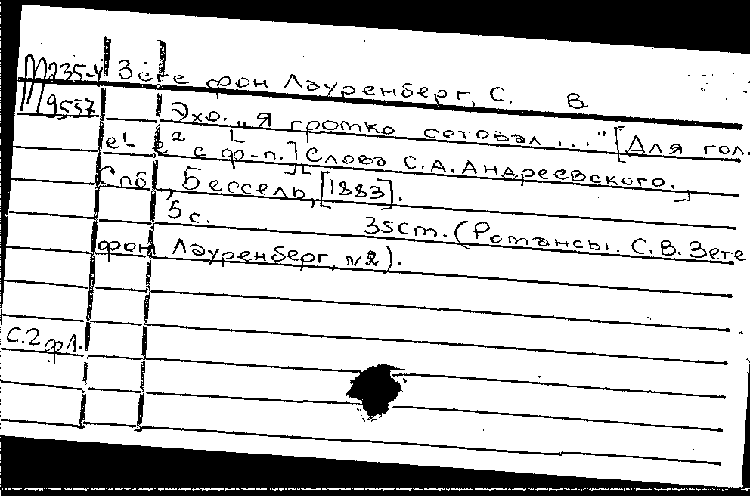 М235-У Зеге фон Лауренберг, С. В.
М9557 Эхо. „Я громко сетовал..." [Для гол.
е¹ - е² с ф-п.] [Слова С.А. Андреевского.]
Спб, Бессель, [1883].
5 с. 35 см. (Романсы. С. В. Зеге
фон Лауренберг, №2).
С.2 фл.